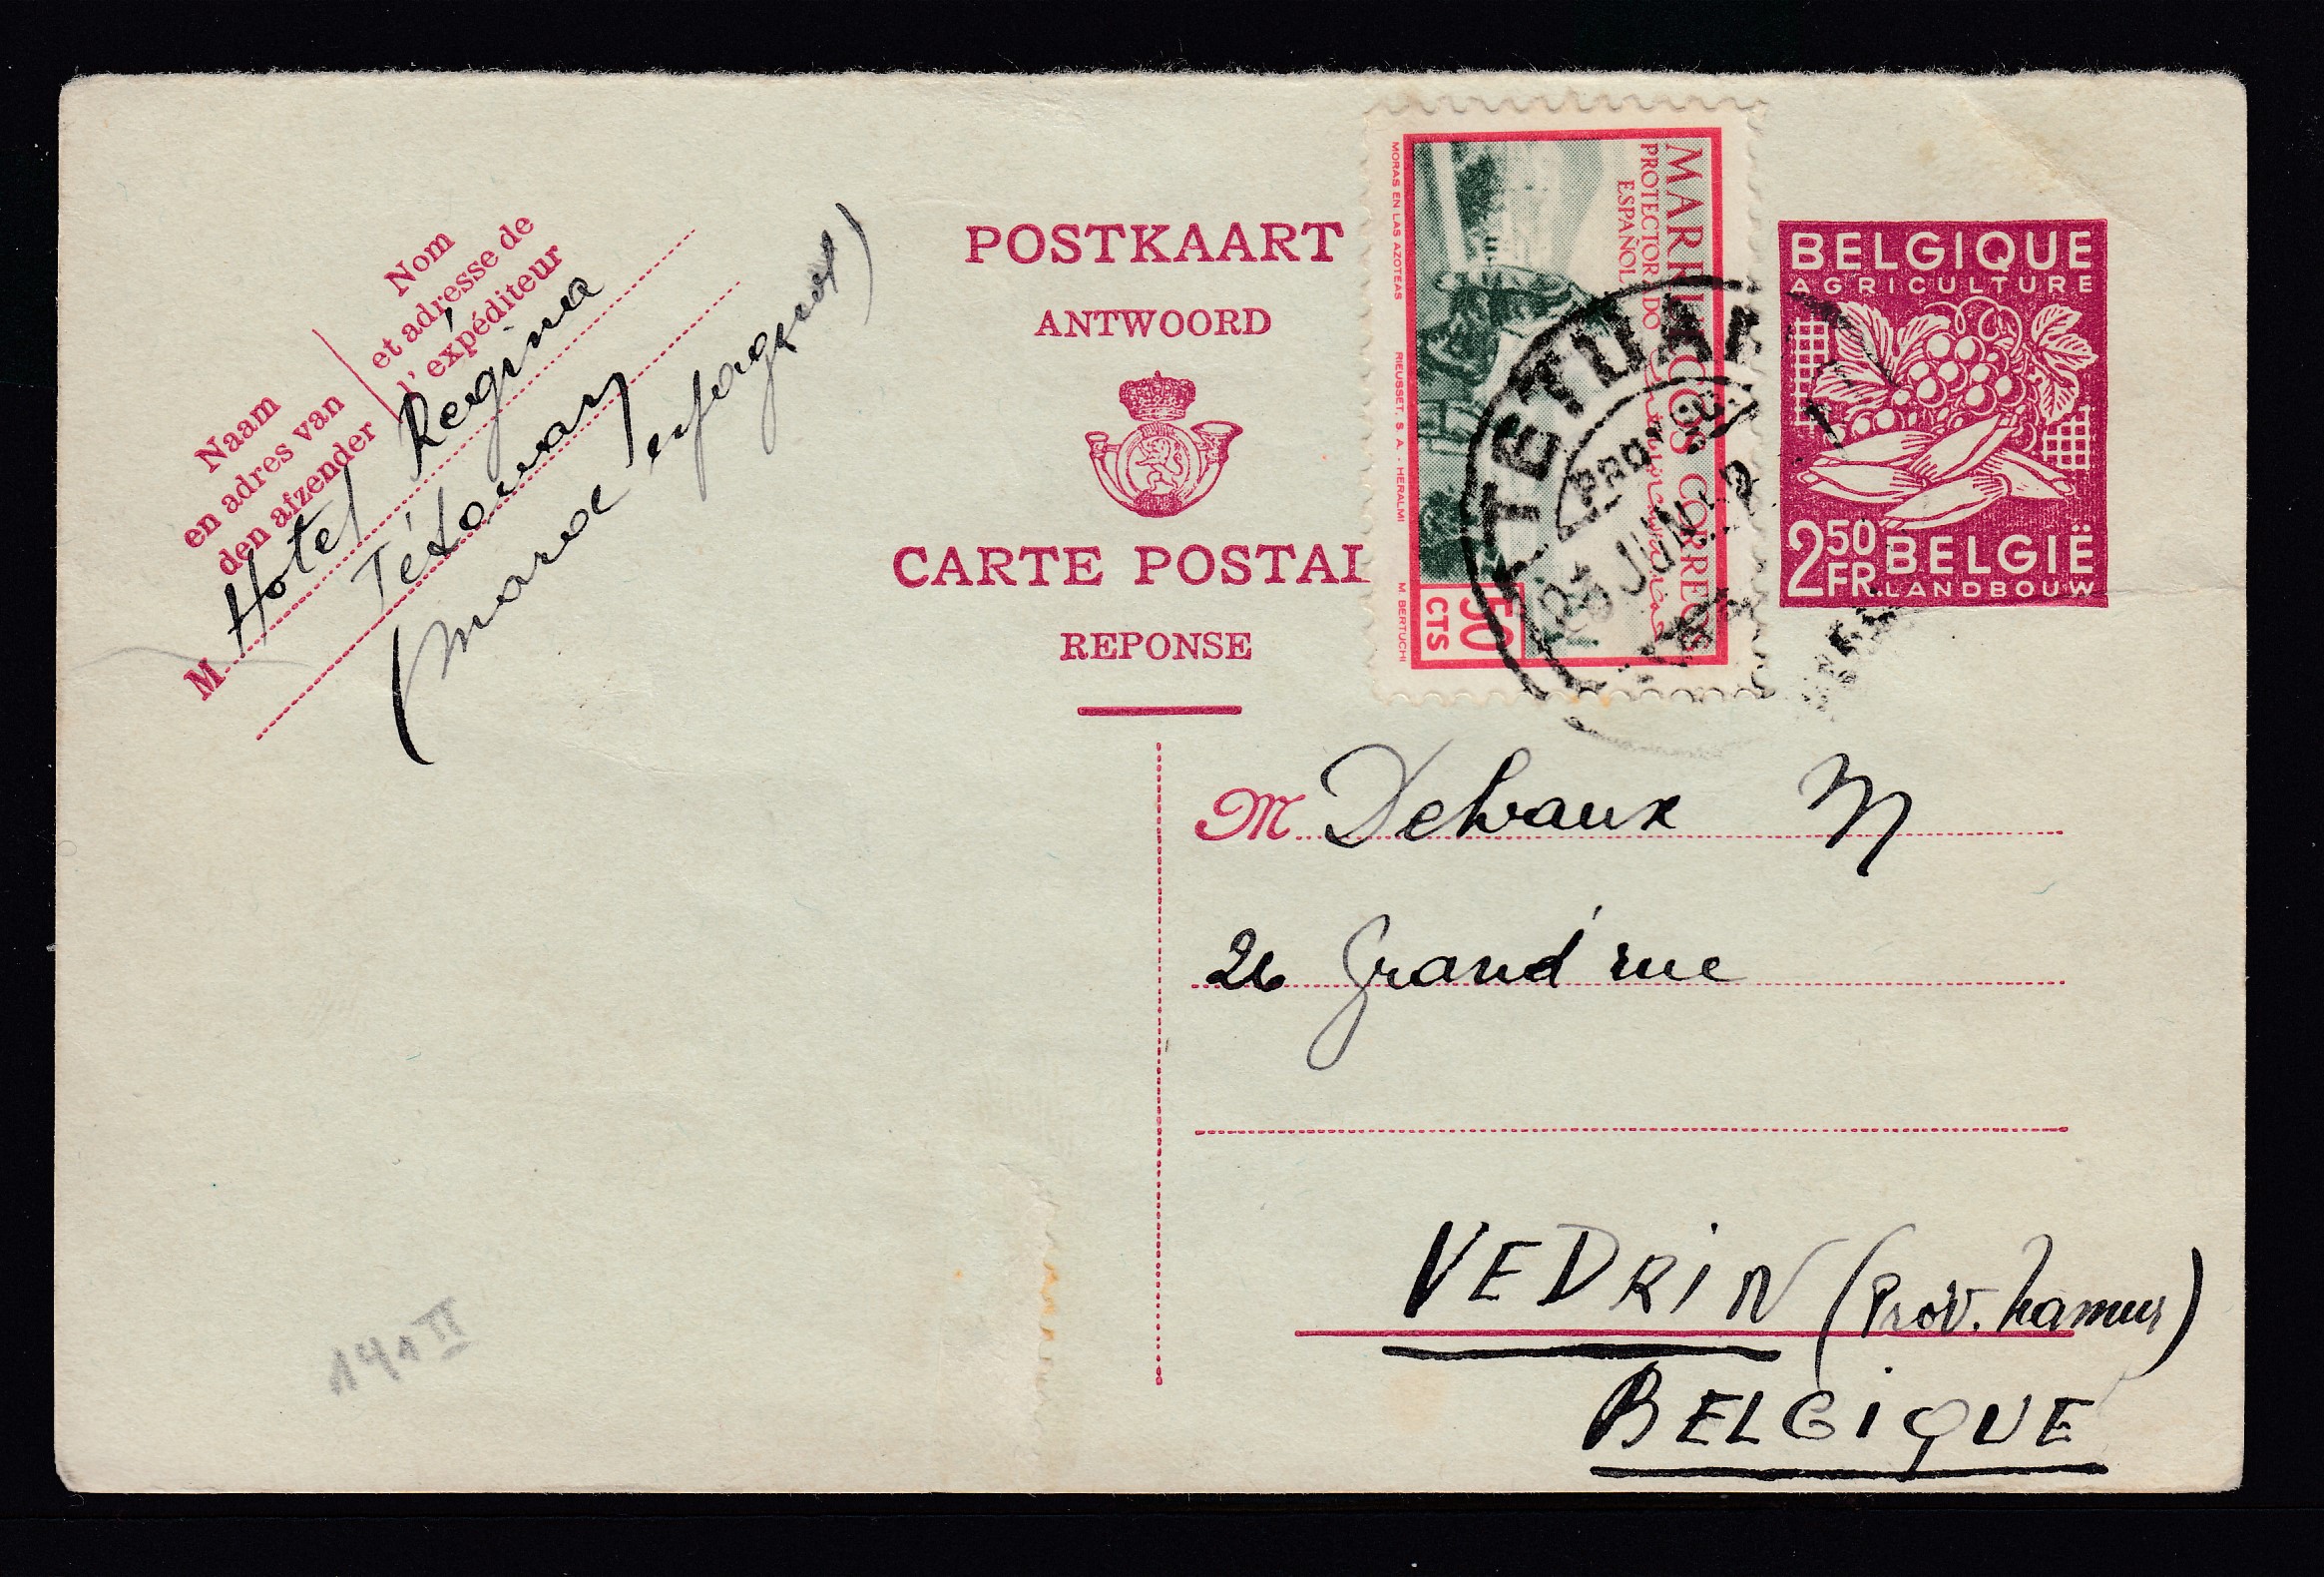 Nom
et adresse de
l'expéditeur
Naam
en adres van
den afzender
M Hotel Régina
Tétouan
(Maroc espagnol)
POSTKAART
ANTWOORD
CARTE POSTAL
REPONSE
MARRUECOS CORREOS
PROTECTORADO
ESPAÑOL
50
CTS
MORAS EN LAS AZOTEAS
RIEUSSET, S. A. - HERALMI
M. BERTUCHI
TETUAN
JUN
BELGIQUE
AGRICULTURE
2 50 FR.
BELGIË
LANDBOUW
M Delvaux M
26 Grand'rue
VEDRIN (Prov. Namur)
BELGIQUE